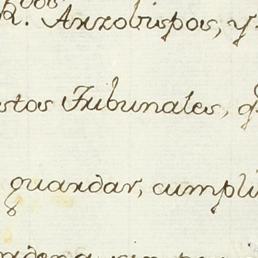 R.dos Arzobispos, y
stos Tribunales, q
guardar, cumpli